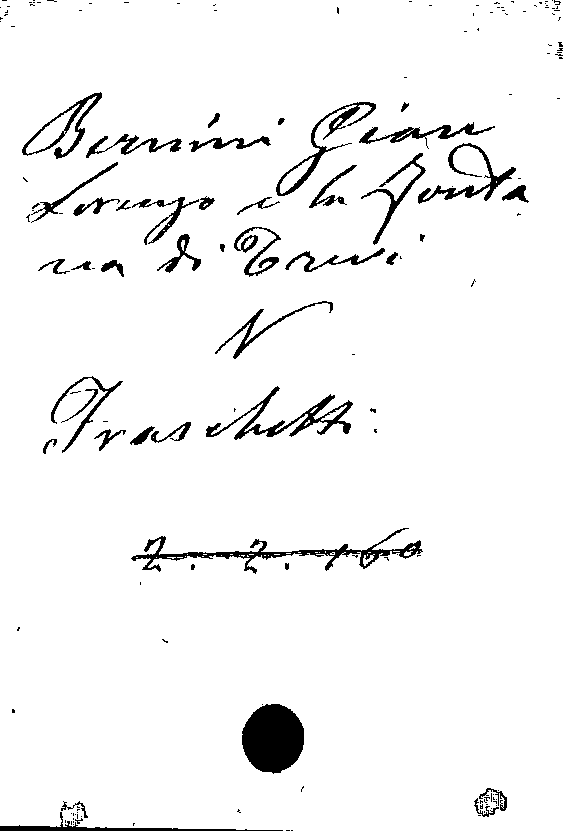 Bernini Gian
Lorenzo e la Fonta
na di Trevi
V
Fraschetti.
2. 2. 160